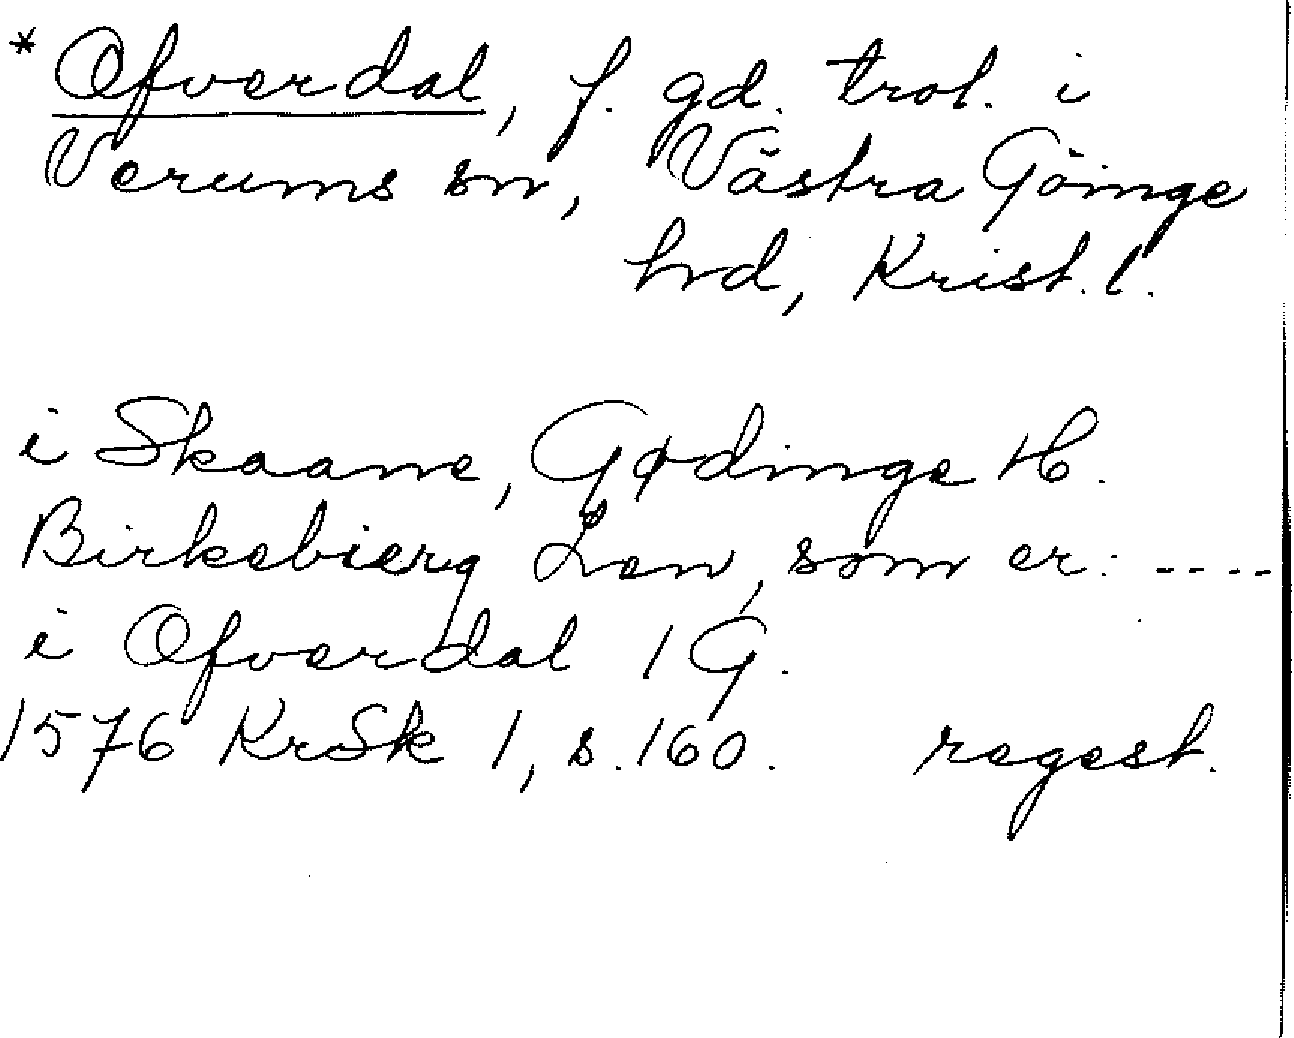 * Ofverdal, f. gd. trol. i
Verums sn, Västra Göinge
hrd, Krist. l.
i Skaane, Gødinge H.
Birkebierg Len, som er: ----
i Ofverdal 1 G.
1576 KrSk 1, s. 160. regest.